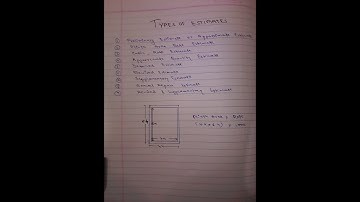 TYPES OF ESTIMATES
① Preliminary Estimate or Approximate
② Plinth Area Rate Estimate
③ Cubic Rate Estimate
④ Approximate Quantity Estimate
⑤ Detailed Estimate
⑥ Revised Estimate
⑦ Supplementary Estimate
⑧ Annual Repair Estimate
⑨ Revised & Supplementary Estimate
Plinth Area x Rate